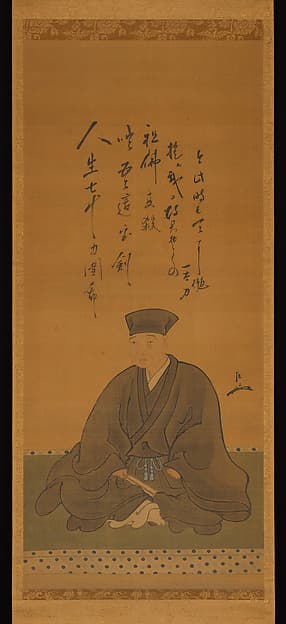 人生七十力圍希
咄吾這宝剣
祖佛共殺
提ル我得具足の
一太刀
今此時そ天ニ抛